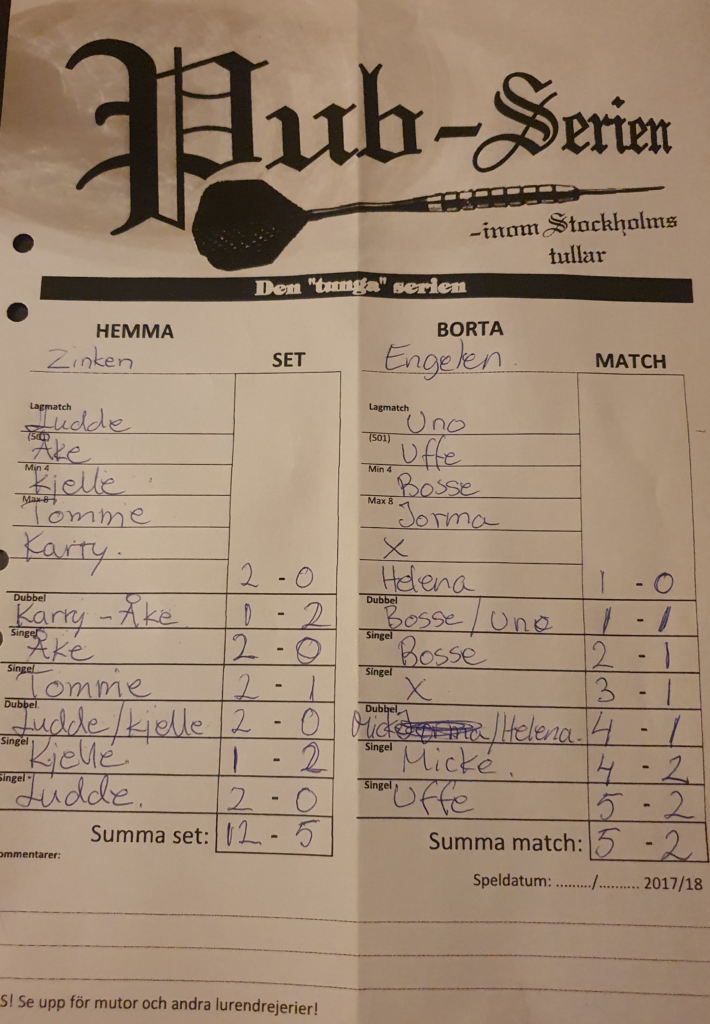 Pub-Serien
-inom Stockholms
tullar
Den "tunga" serien
HEMMA
Zinken
SET
BORTA
Engelen
MATCH
Lagmatch
Ludde
(501)
Åke
Min 4
Kjelle
Max 8
Tommie
Karry.
2 - 0
Lagmatch
Uno
(501)
Uffe
Min 4
Bosse
Max 8
Jorma
X
Helena
1 - 0
Dubbel
Karry - Åke
1 - 2
Dubbel
Bosse / Uno
1 - 1
Singel
Åke
2 - 0
Singel
Bosse
2 - 1
Singel
Tommie
2 - 1
Singel
X
3 - 1
Dubbel
Ludde/Kjelle
2 - 0
Dubbel
Micke/Helena.
4 - 1
Singel
Kjelle
1 - 2
Singel
Micke.
4 - 2
Singel
Ludde.
2 - 0
Singel
Uffe
5 - 2
Summa set: 12 - 5
Summa match: 5 - 2
ommentarer:
Speldatum: ........./.......... 2017/18
S! Se upp för mutor och andra lurendrejerier!